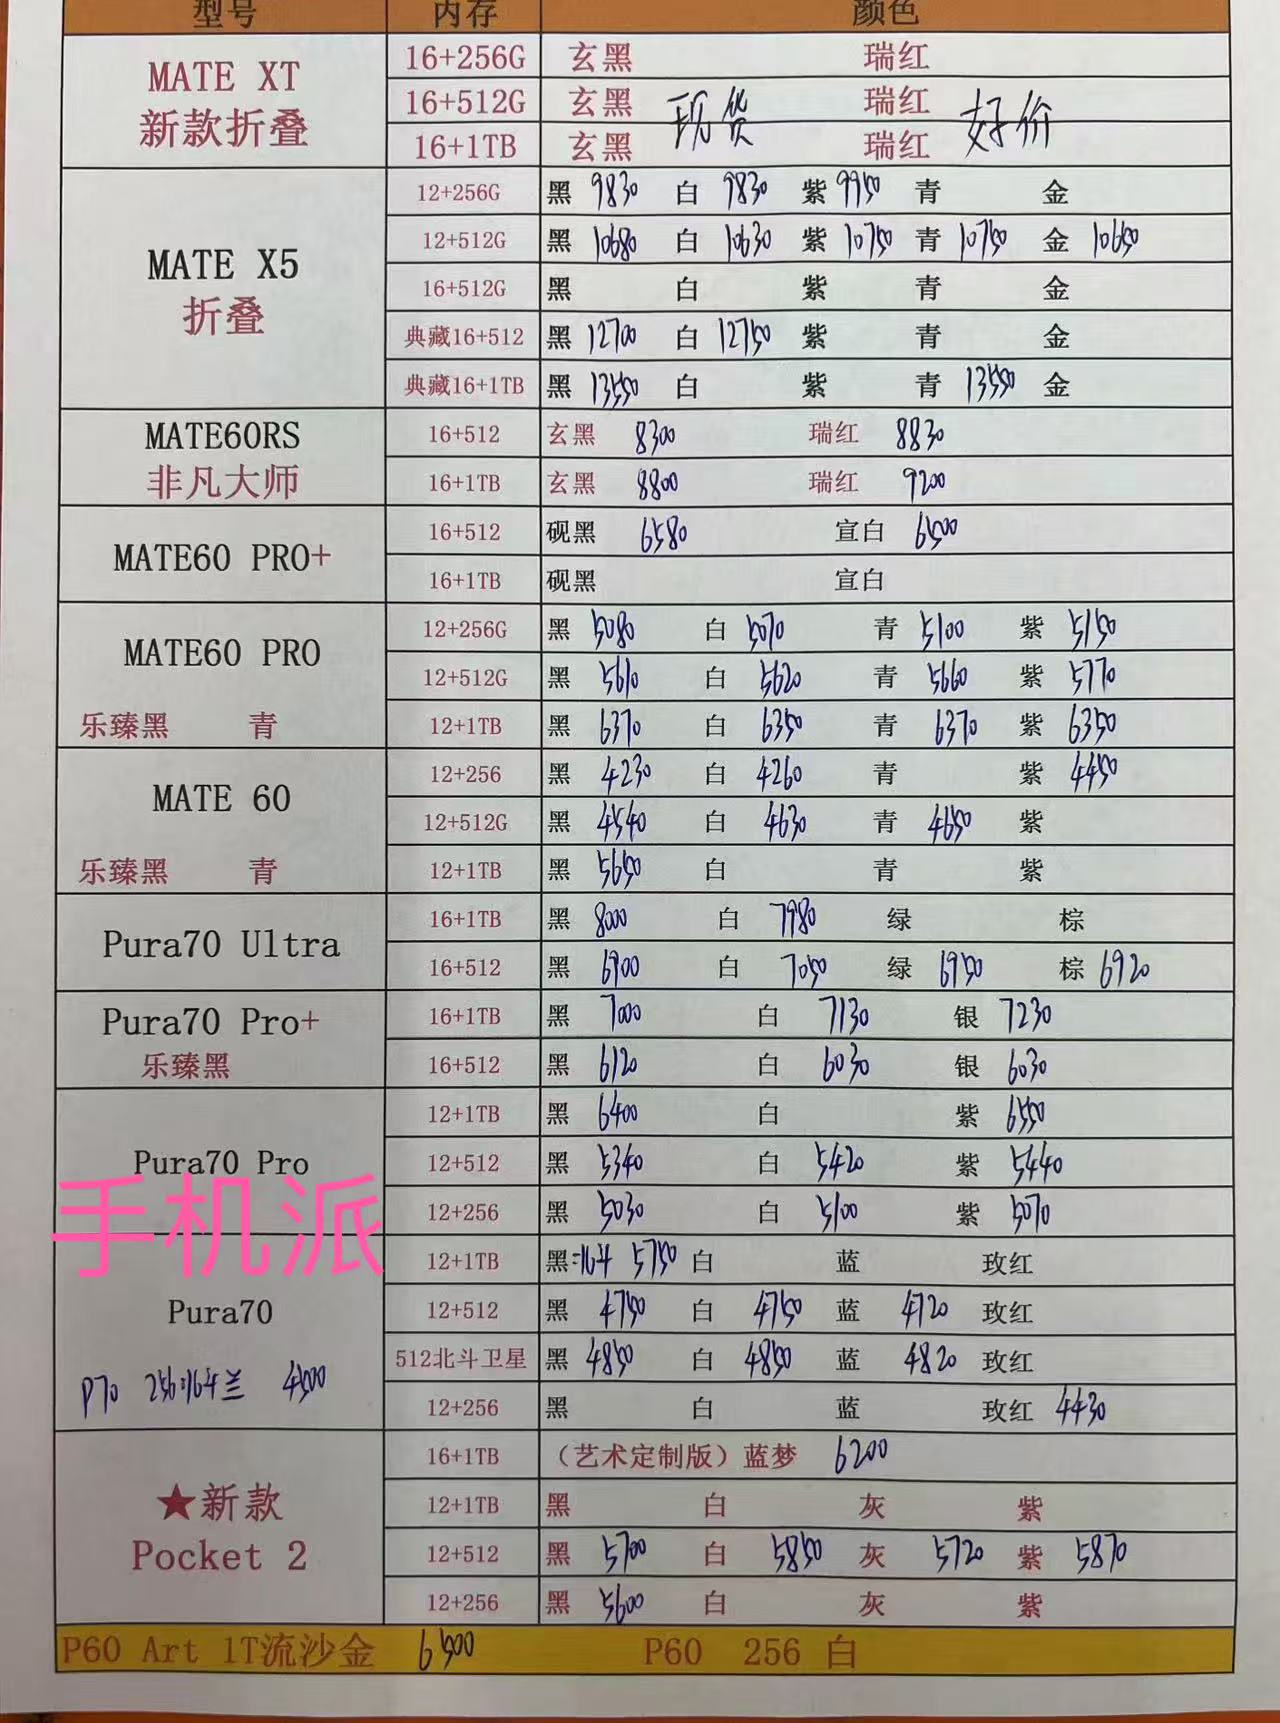 型号 内存 颜色
MATE XT 新款折叠
16+256G 玄黑 瑞红
16+512G 玄黑 现货 瑞红 好价
16+1TB 玄黑 瑞红
MATE X5 折叠
12+256G 黑 9830 白 9830 紫 9950 青 金
12+512G 黑 10680 白 10630 紫 10750 青 10750 金 10650
16+512G 黑 白 紫 青 金
典藏16+512 黑 12700 白 12750 紫 青 金
典藏16+1TB 黑 13550 白 紫 青 13550 金
MATE60RS 非凡大师
16+512 玄黑 8300 瑞红 8830
16+1TB 玄黑 8800 瑞红 9200
MATE60 PRO+
16+512 砚黑 6580 宣白 6500
16+1TB 砚黑 宣白
MATE60 PRO
乐臻黑 青
12+256G 黑 5080 白 5070 青 5100 紫 5150
12+512G 黑 5610 白 5620 青 5660 紫 5770
12+1TB 黑 6370 白 6350 青 6370 紫 6350
MATE 60
乐臻黑 青
12+256 黑 4230 白 4260 青 紫 4450
12+512G 黑 4540 白 4630 青 4650 紫
12+1TB 黑 5650 白 青 紫
Pura70 Ultra
16+1TB 黑 8000 白 7980 绿 棕
16+512 黑 6900 白 7050 绿 6950 棕 6920
Pura70 Pro+
乐臻黑
16+1TB 黑 7000 白 7130 银 7230
16+512 黑 6120 白 6030 银 6030
Pura70 Pro
12+1TB 黑 6400 白 紫 6550
12+512 黑 5340 白 5420 紫 5440
12+256 黑 5030 白 5100 紫 5070
手机派
Pura70
P70 256北斗兰 4500
12+1TB 黑 北斗 5750 白 蓝 玫红
12+512 黑 4750 白 4750 蓝 4720 玫红
512北斗卫星 黑 4850 白 4850 蓝 4820 玫红
12+256 黑 白 蓝 玫红 4430
★新款
Pocket 2
16+1TB (艺术定制版)蓝梦 6200
12+1TB 黑 白 灰 紫
12+512 黑 5700 白 5850 灰 5720 紫 5870
12+256 黑 5600 白 灰 紫
P60 Art 1T流沙金 6500 P60 256 白